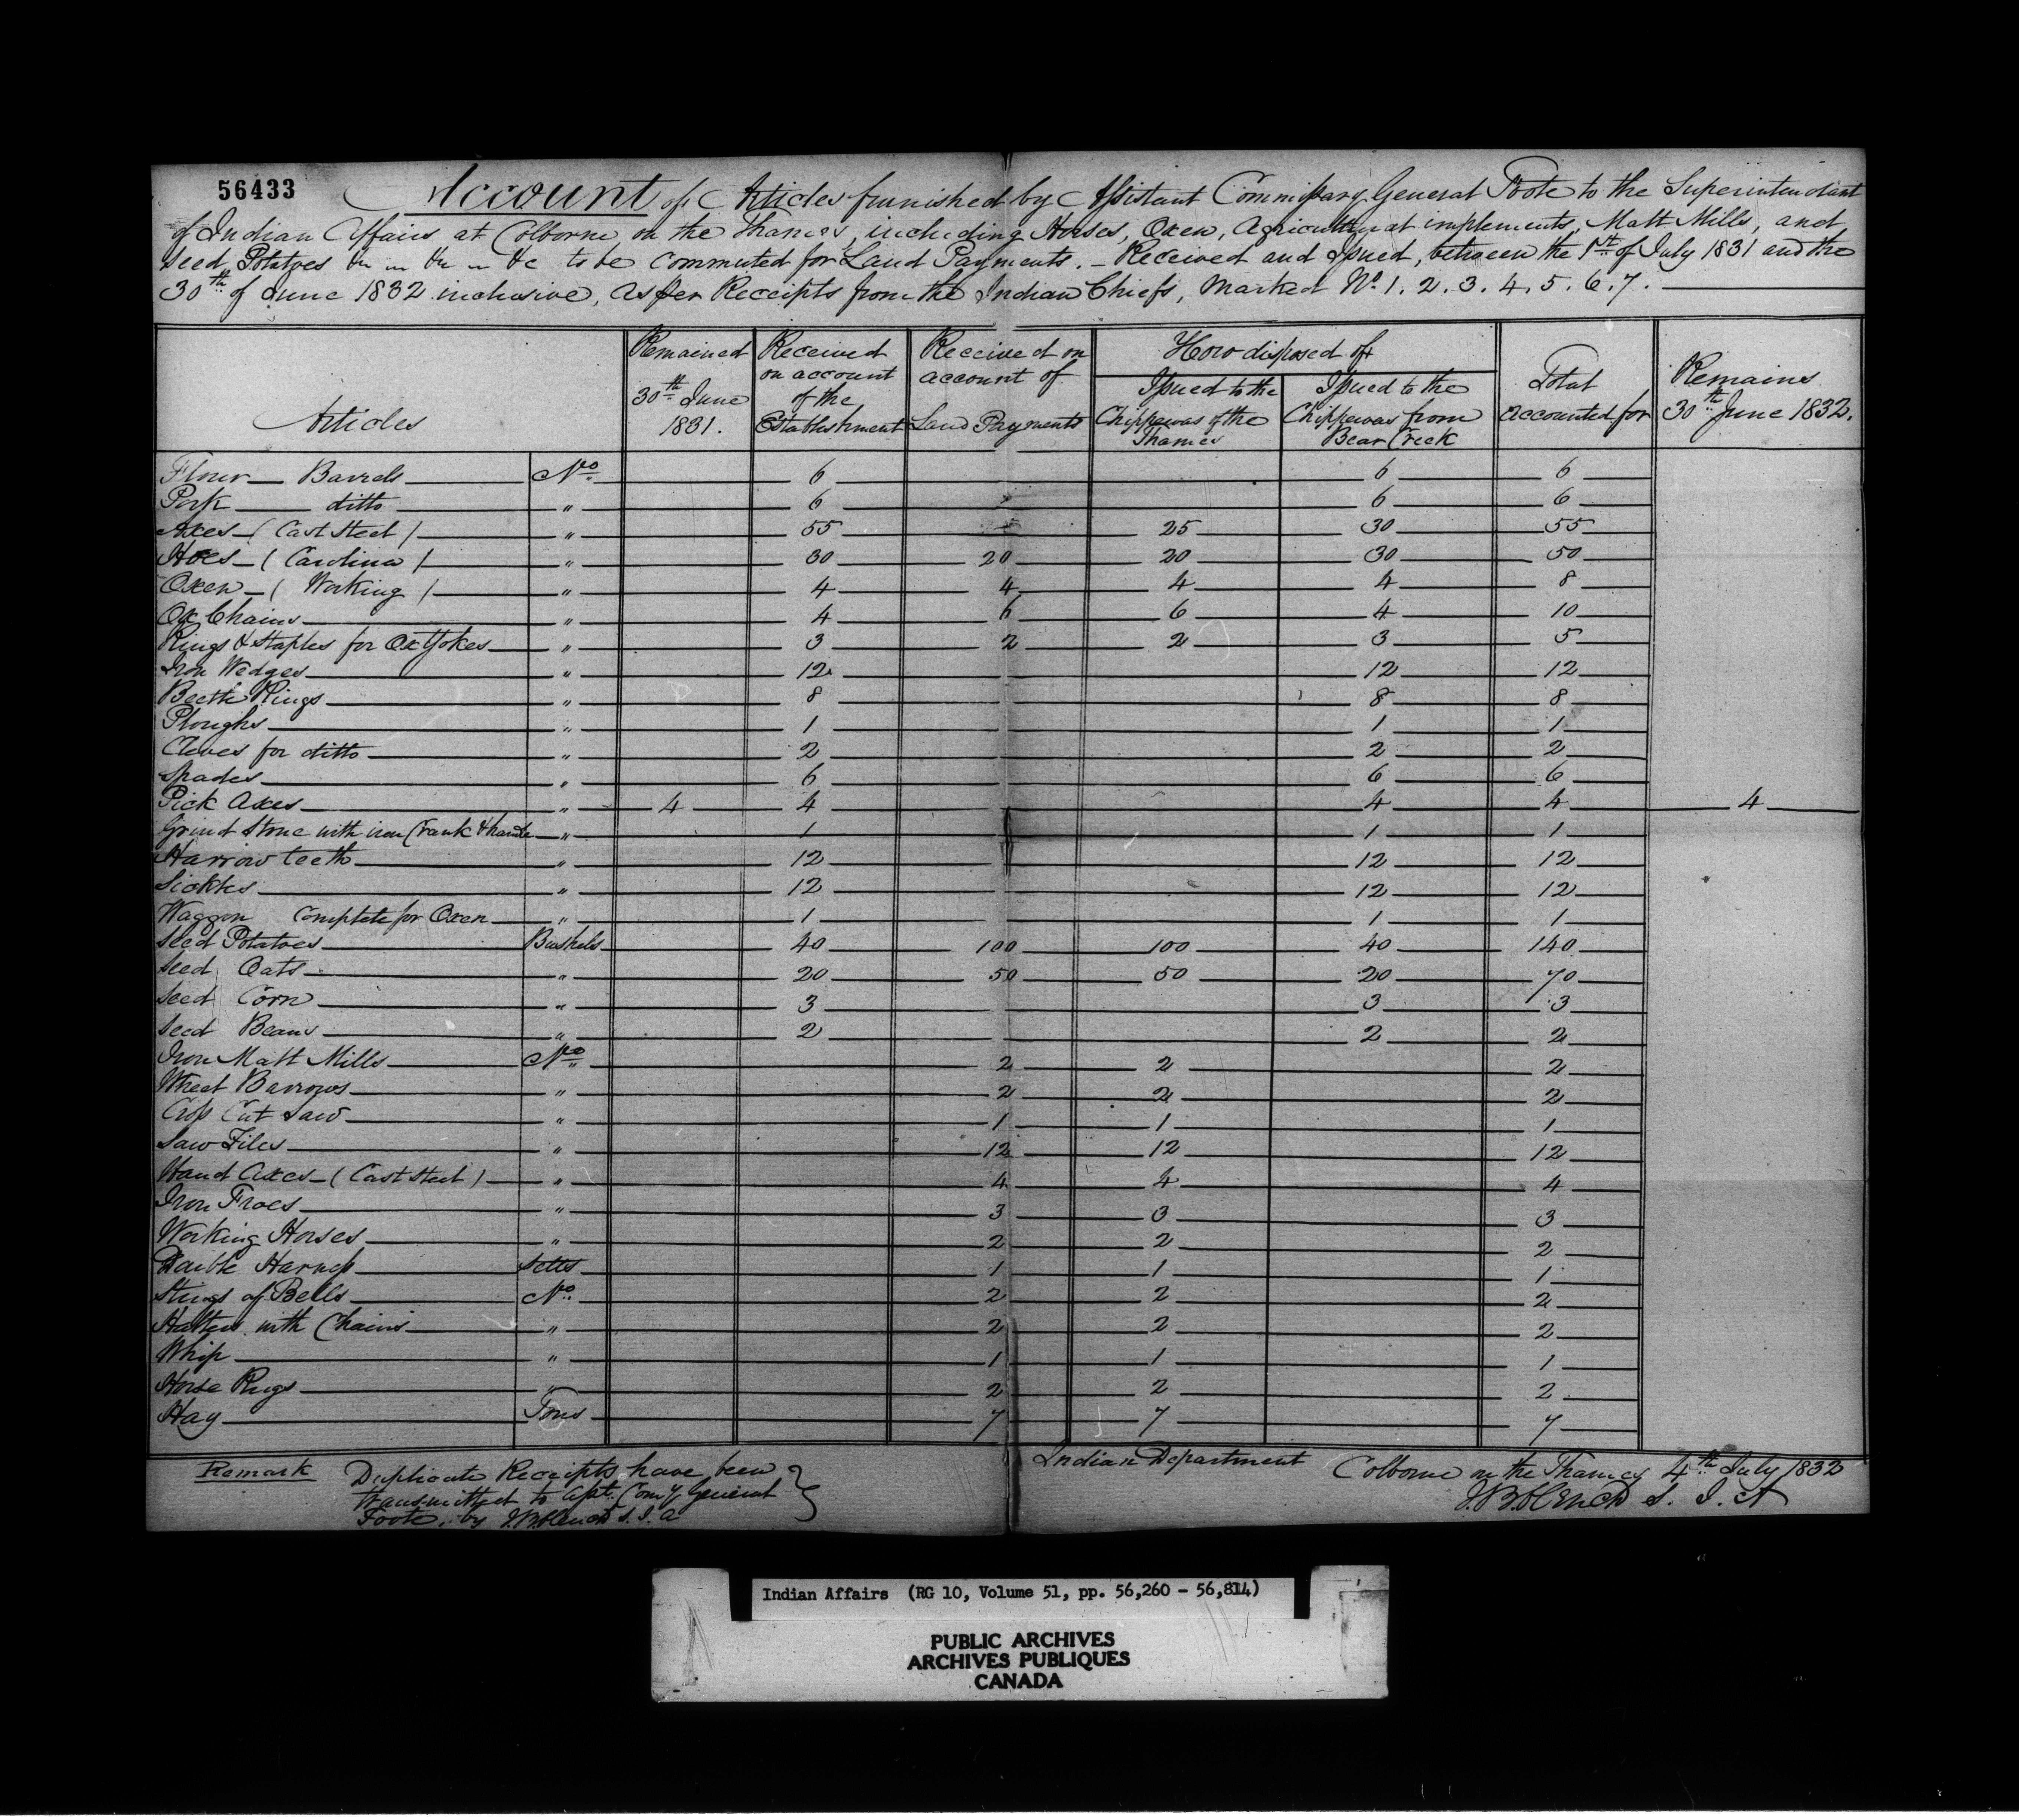 56433
Account of Articles furnished by Assistant Commissary General Foote to the Superintendant
of Indian Affairs at Colborne on the Thames, including Horses, Oxen, Agricultural implements, Matt Mills, and
Seed Potatoes &c to be commuted for Land Payments. - Received and Issued, between the 1st of July 1831 and the
30th of June 1832 inclusive, as per Receipts from the Indian Chiefs, marked No. 1. 2. 3. 4. 5. 6. 7.
Articles | Remained 30th June 1831. | Received on account of the Establishment | Received on account of Land Payments | How disposed of | Total accounted for | Remains 30th June 1832.
Issued to the Chippewas of the Thames | Issued to the Chippewas from Bear Creek
Flour Barrels No. 6 6 6
Pork ditto " 6 6 6
Axes - (Cast Steel) " 55 25 30 55
Hoes - (Carolina) " 30 20 20 30 50
Oxen - (Working) " 4 4 4 4 8
Ox Chains " 4 6 6 4 10
Rings & Staples for Ox Yokes " 3 2 2 3 5
Iron Wedges " 12 12 12
Beetle Rings " 8 8 8
Ploughs " 1 1 1
Cleves for ditto " 2 2 2
Spades " 6 6 6
Pick Axes " 4 4 4 4 4
Grind Stone with iron Crank & handle " 1 1 1
Harrow teeth " 12 12 12
Sickles " 12 12 12
Waggon Complete for Oxen " 1 1 1
Seed Potatoes Bushels 40 100 100 40 140
Seed Oats " 20 50 50 20 70
Seed Corn " 3 3 3
Seed Beans " 2 2 2
Iron Matt Mills No. 2 2 2
Wheel Barrows " 2 2 2
Cross Cut Saw " 1 1 1
Saw Files " 12 12 12
Hand Axes - (Cast Steel) " 4 4 4
Iron Froes " 3 3 3
Working Horses " 2 2 2
Double Harness Setts 1 1 1
Strings of Bells No. 2 2 2
Halters with Chains " 2 2 2
Whip " 1 1 1
Horse Rugs " 2 2 2
Hay Tons 7 7 7
Remark Duplicate Receipts have been
transmitted to Asst. Comy General
Foote, by J.B. Clench S. I. A
Indian Department Colborne on the Thames 4th July 1832
J.B. Clench S. I. A
Indian Affairs (RG 10, Volume 51, pp. 56,260 - 56,814)
PUBLIC ARCHIVES
ARCHIVES PUBLIQUES
CANADA